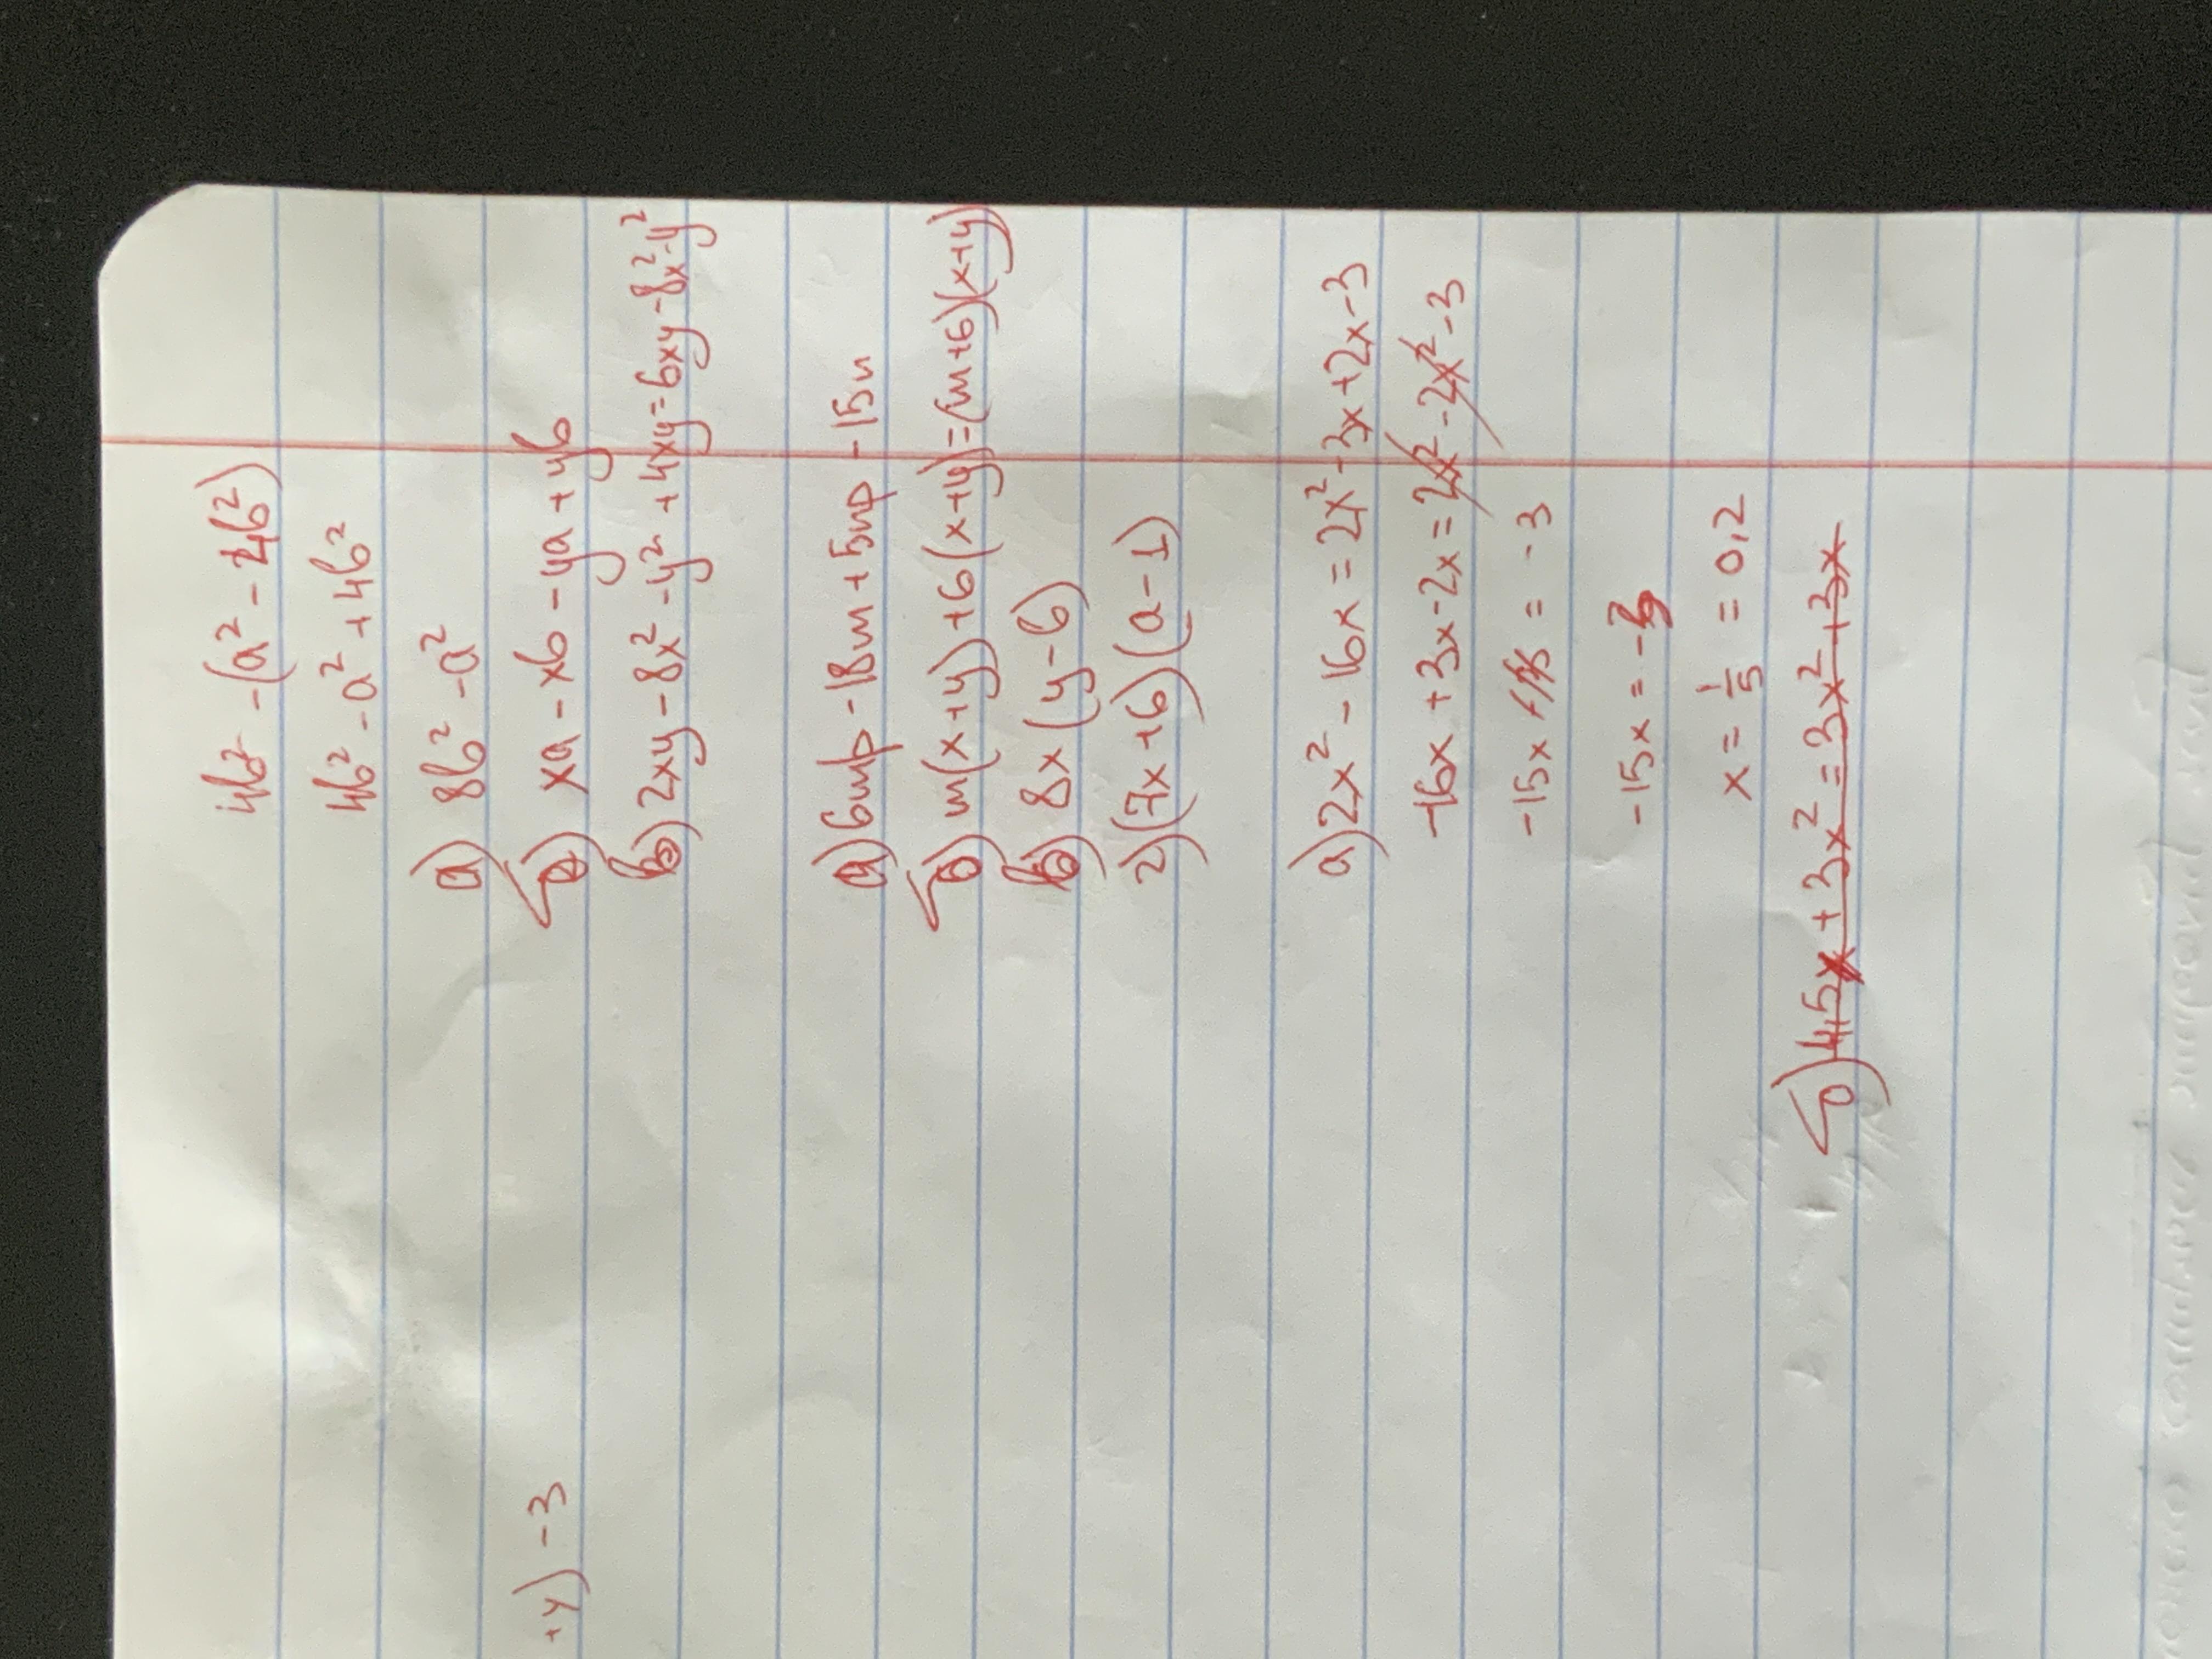 4b² - (a² - 4b²)
4b² - a² + 4b²
а) 8b² - a²
б) xa - xb - ya + yb
в) 2xy - 8x² - y² + 4xy = 6xy - 8x² - y²
а) 6mp - 18m + 5np - 15n
б) m(x+y) + 6(x+y) = (m+6)(x+y)
в) 8x(y-6)
г) (7x+6)(a-1)
а) 2x² - 16x = 2x² - 3x + 2x - 3
-16x + 3x - 2x = 2x² - 2x² - 3
-15x = -3
-15x = -3
x = 1/5 = 0,2
б) 4,5x + 3x² = 3x² + 3x
+y) - 3